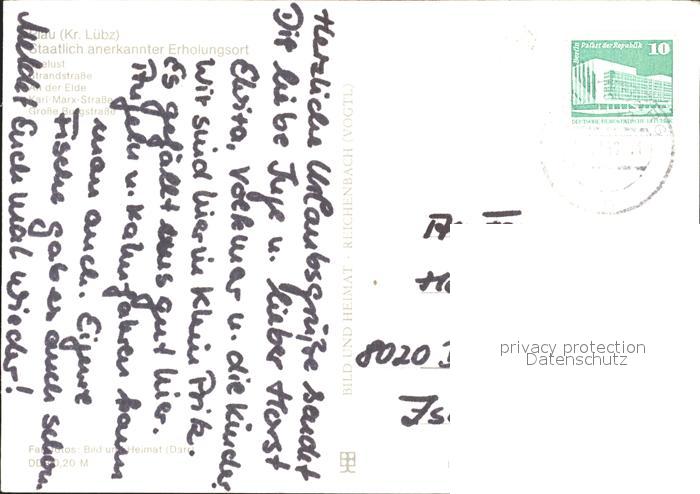 Plau (Kr. Lübz)
Staatlich anerkannter Erholungsort
Seelust
Strandstraße
An der Elde
Karl-Marx-Straße
Große Burgstraße
Herzliche Urlaubsgrüße sendet
Dir liebe Inge u. lieber Horst
Elvira, Volkmar u. die Kinder
Wir sind hier in Klein Pritz.
Es gefällt uns gut hier.
Angeln u. Kahnfahren kann
man auch. Eigene
Fische gab es auch schon.
Meldet Euch mal wieder!
Farbfotos: Bild und Heimat (Darr)
DDR 0,20 M
BILD UND HEIMAT · REICHENBACH (VOGTL)
Berlin Palast der Republik
10
DEUTSCHE DEMOKRATISCHE REPUBLIK
8020
privacy protection
Datenschutz